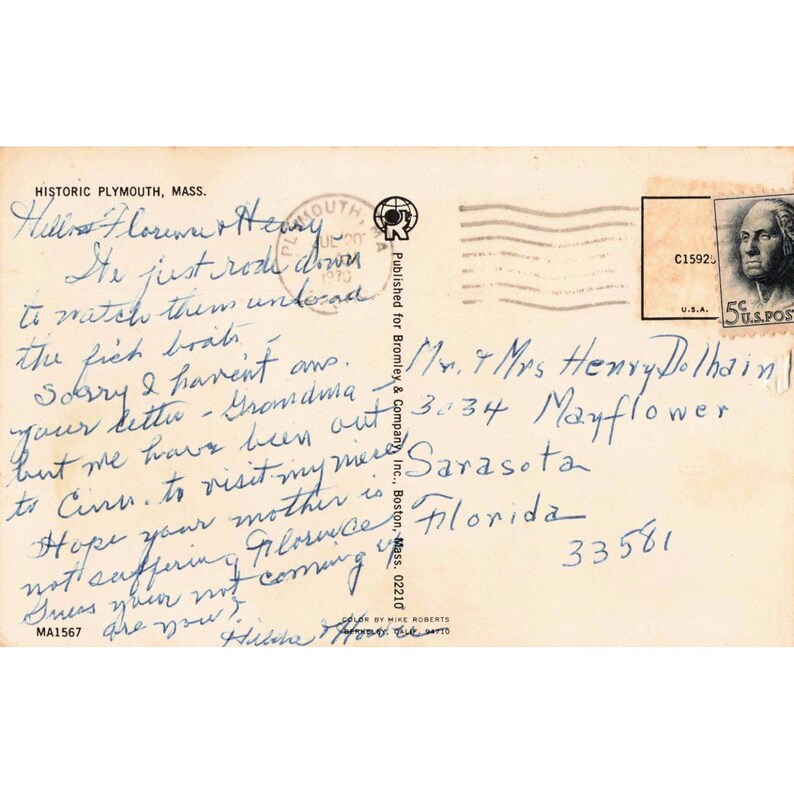 HISTORIC PLYMOUTH, MASS.
Hello Florence & Henry -
We just rode down
to watch them unload
the fish boats -
Sorry I haven't ans.
your letter - Grandma -
but we have been out
to Cinn. to visit my niece
Hope your mother is
not suffering Florence
Guess your not coming up
are you?
Hilda &
MA1567
PLYMOUTH, MA
JUL 20
1970
Published for Bromley & Company, Inc., Boston, Mass. 02210
COLOR BY MIKE ROBERTS
BERKELEY, CALIF. 94710
C15925
U.S.A.
5¢
U.S. POS
Mr. & Mrs Henry Dolhain
3034 Mayflower
Sarasota
Florida
33581